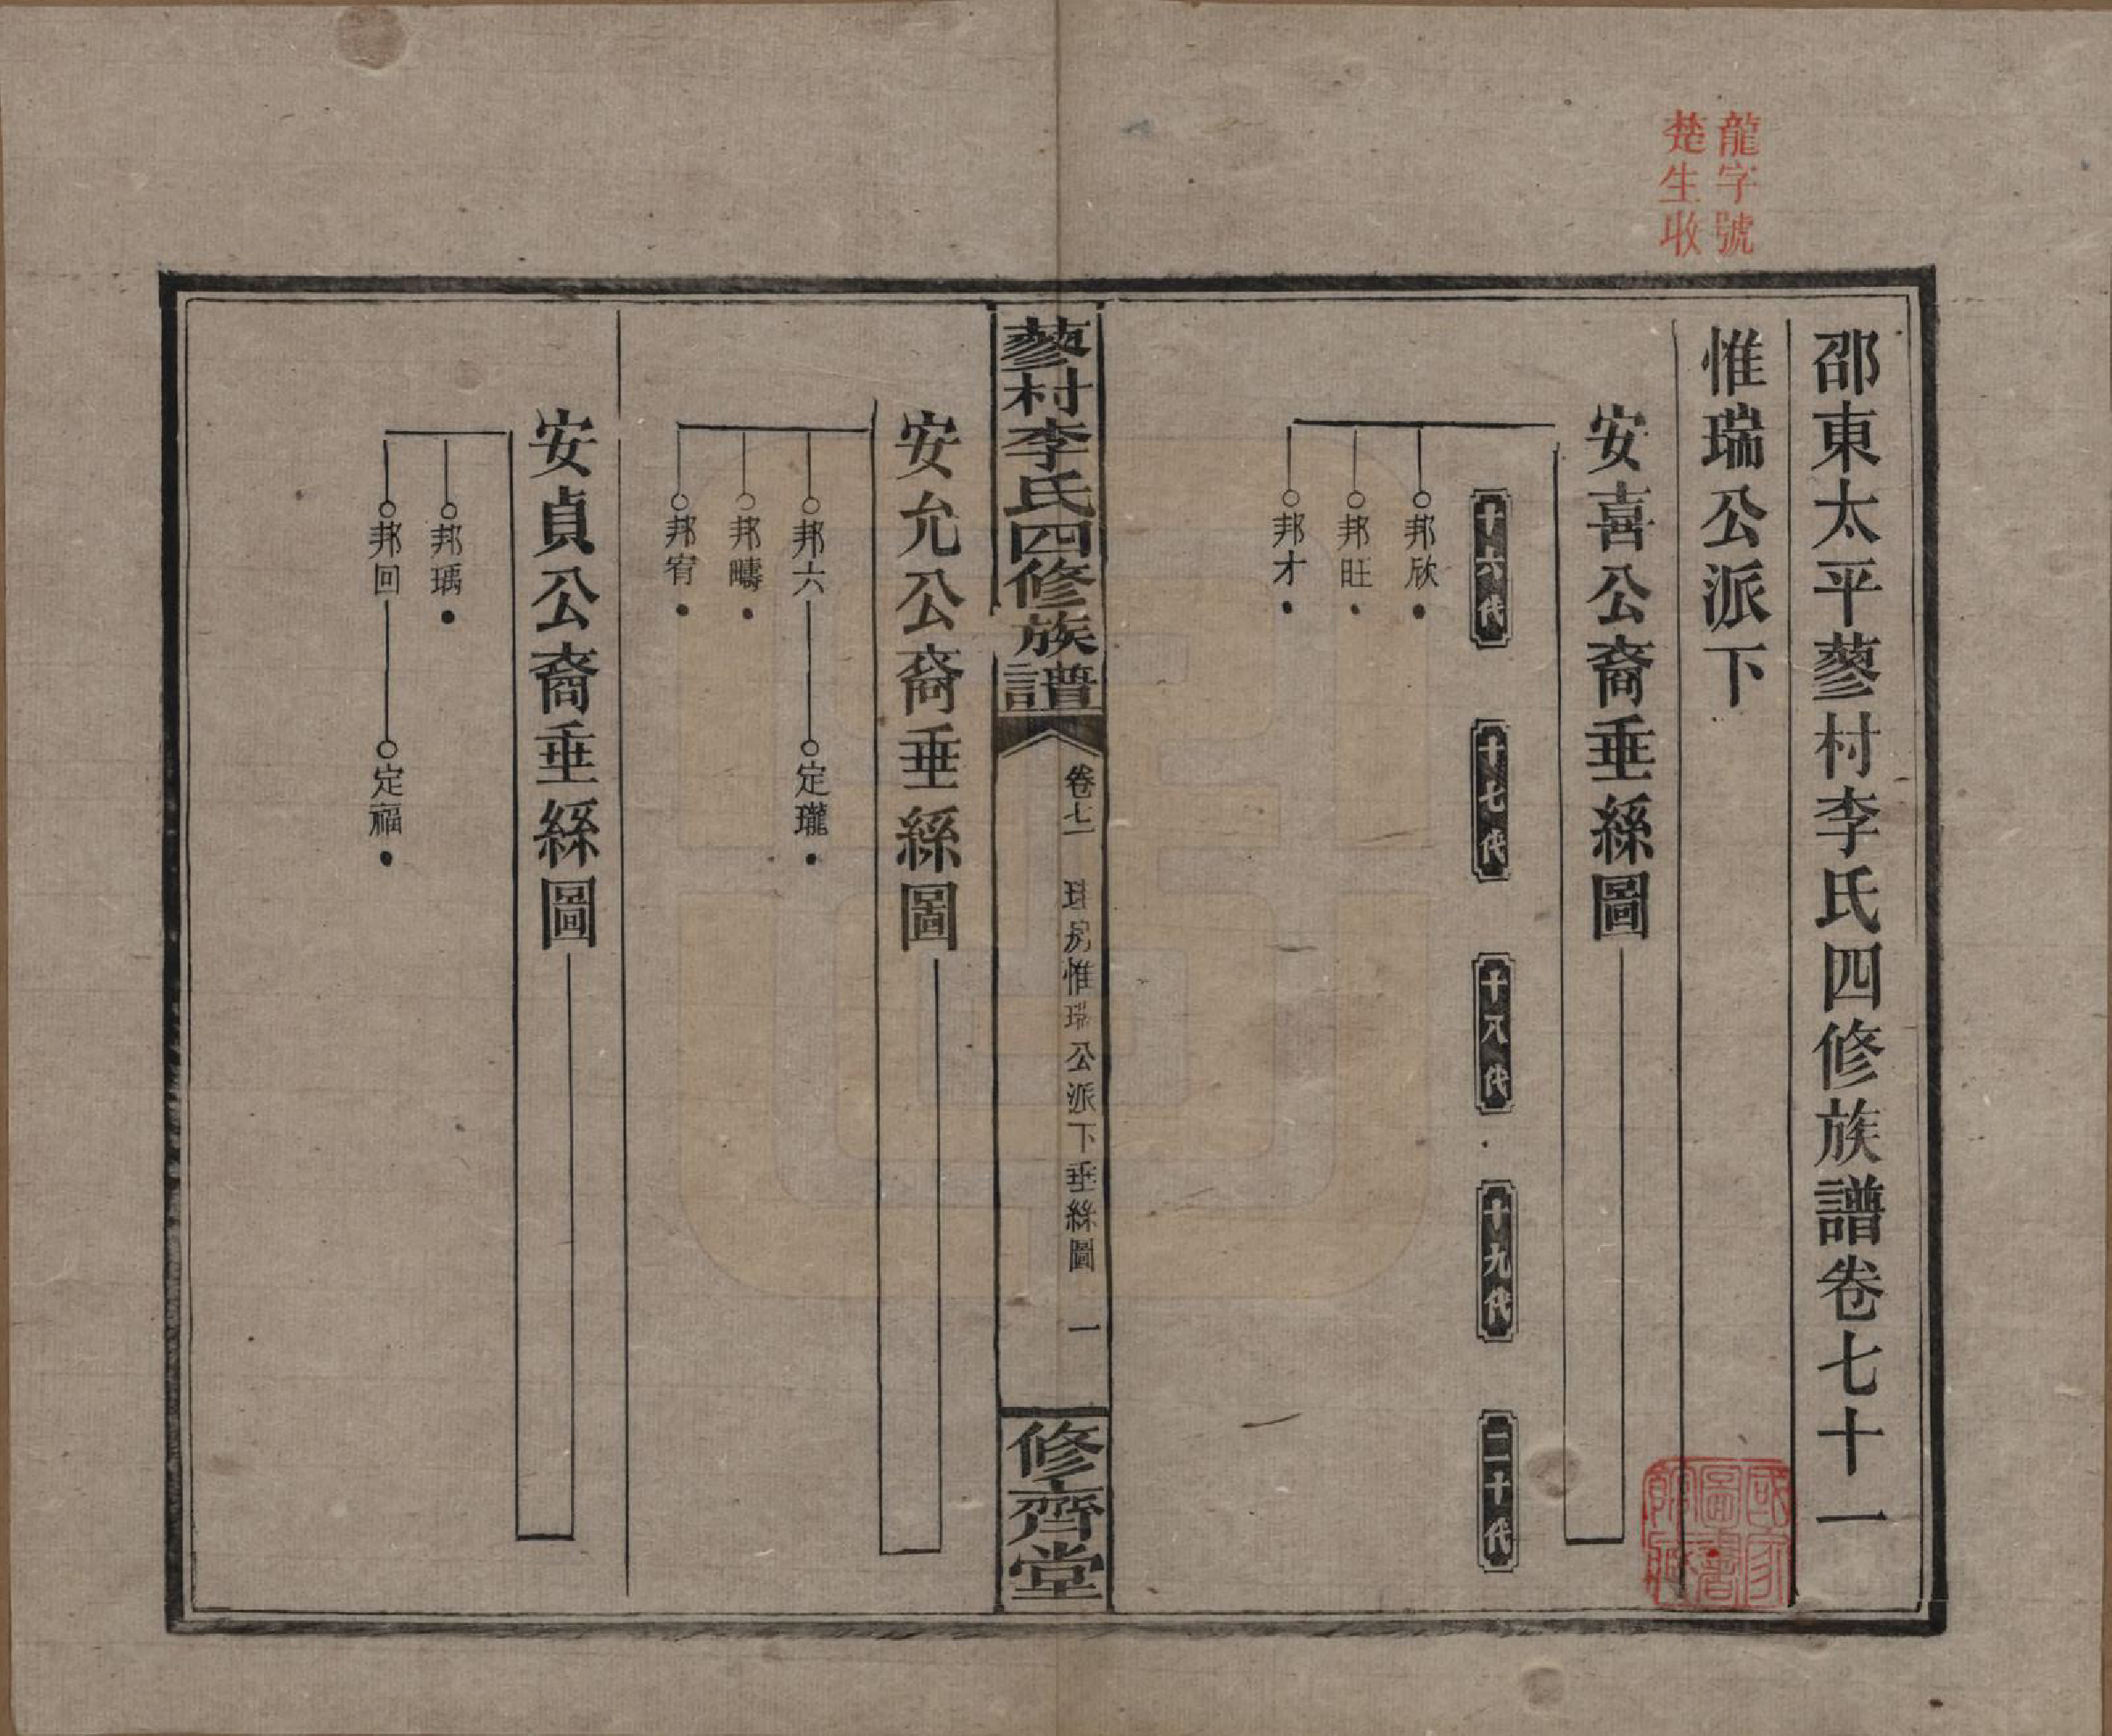 龍字號
楚生收
邵東太平蓼村李氏四修族譜卷七十一
惟瑞公派下
安喜公裔垂絲圖
十六代
十七代
十八代
十九代
二十代
邦欣
邦旺
邦才
蓼村李氏四修族譜
卷七一
房惟瑞公派下垂絲圖
一
修齊堂
安允公裔垂絲圖
邦六
定瓏
邦疇
邦宥
安貞公裔垂絲圖
邦瑀
邦回
定福